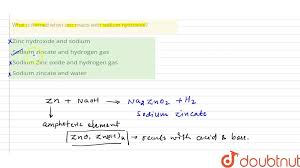 What is formed when zinc reacts with sodium hydroxide?
Zinc hydroxide and sodium
Sodium zincate and hydrogen gas
Sodium Zinc oxide and hydrogen gas
Sodium zincate and water
Zn + NaOH → Na2ZnO2 + H2
Sodium zincate
amphoteric element
ZnO, Zn(OH)2 → reacts with acid & base.
doubtnut